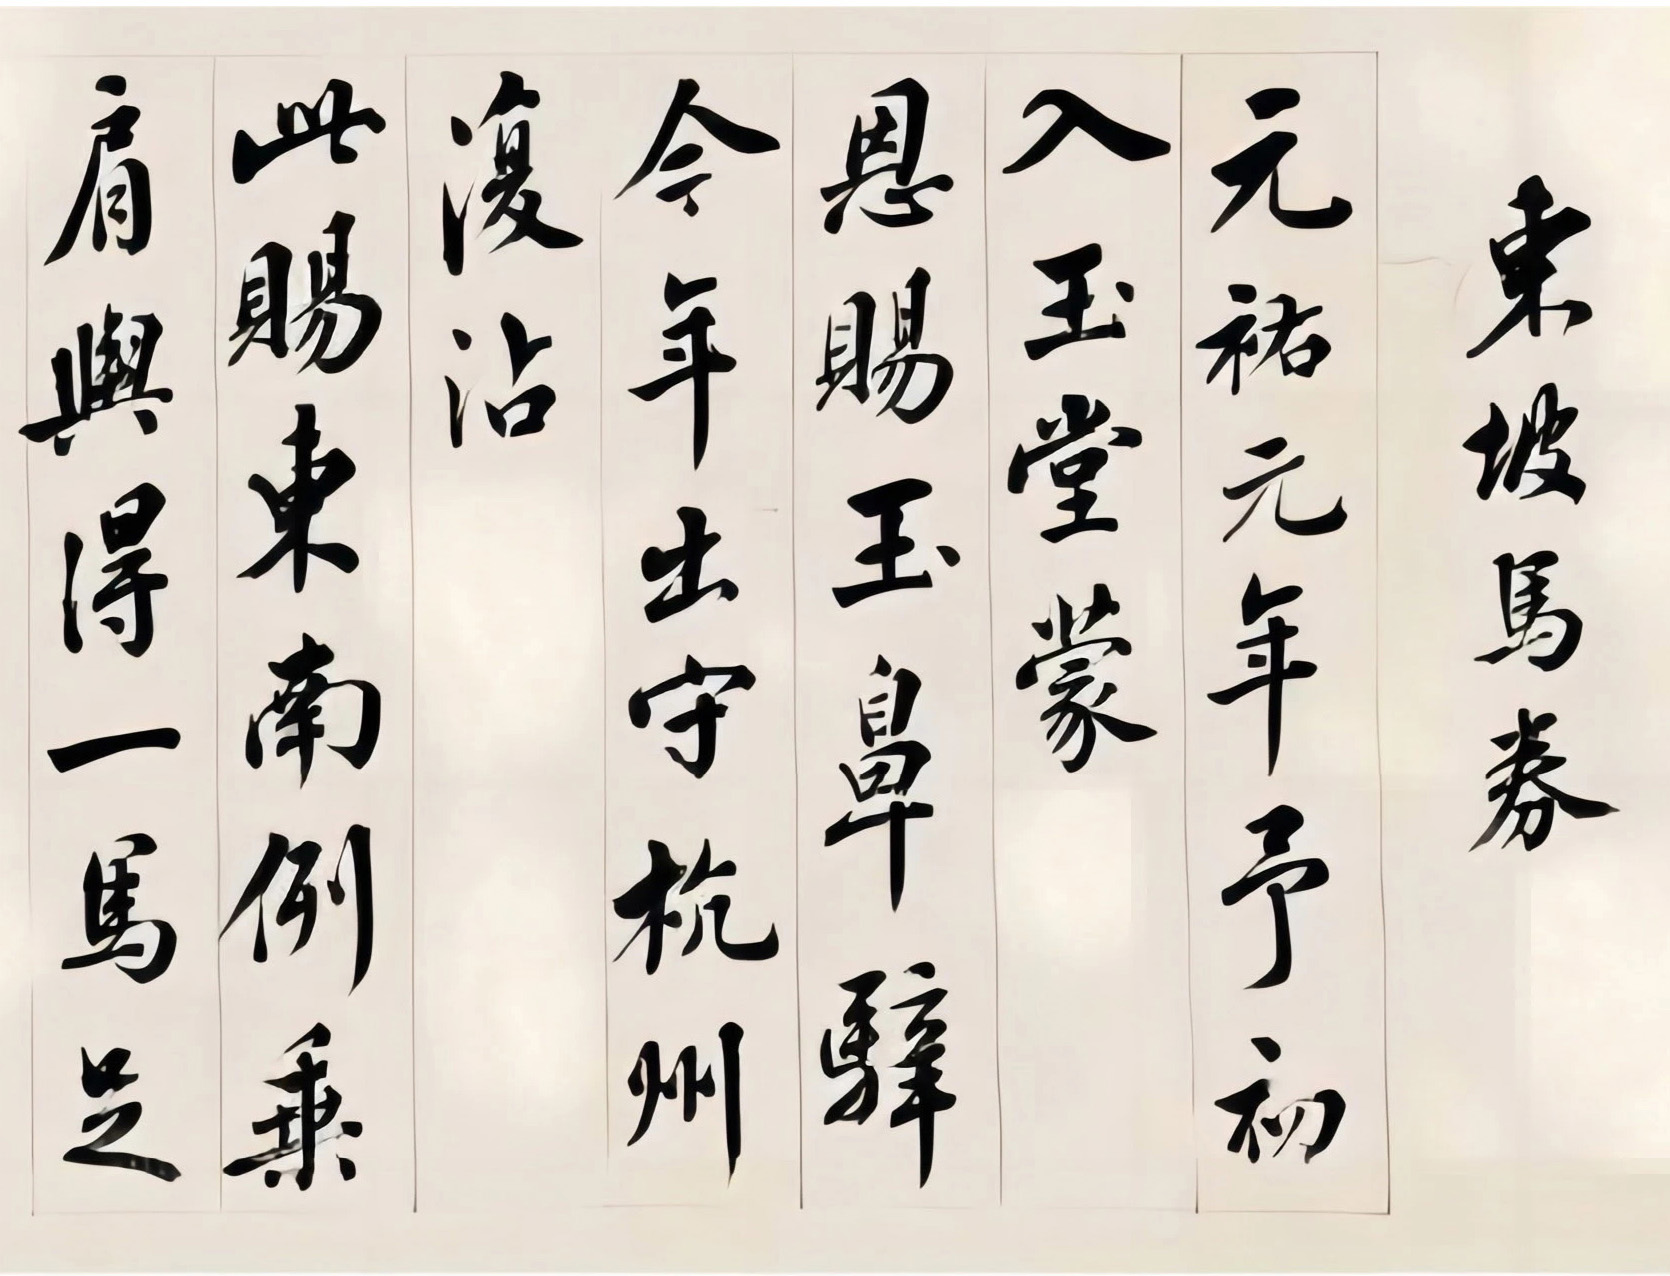 東坡馬券
元祐元年予初
入玉堂蒙
恩賜玉鼻騂
今年出守杭州
復沾
此賜東南例乗
肩輿得一馬足